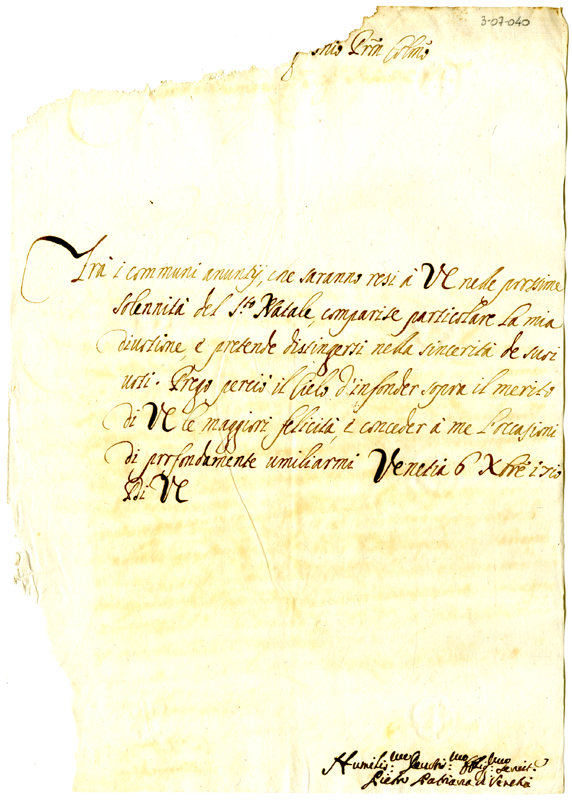 3-07-040
onio Prõn Colmo
Trà i communi anuntij, che saranno resi à VE nelle prossime
solennità del S.to Natale, comparise particolare la mia
divotione, e pretende distingersi nella sincerità de suoi
voti. Prego perciò il Cielo d'infonder sopra il merito
di VE le maggiori felicità, e conceder à me l'occasioni
di profondamente umiliarmi Venetia 6 Xbre 1710
Di VE
Humilis:mo Devotis:mo Obblig:mo Servit:
Pietro di Venetia